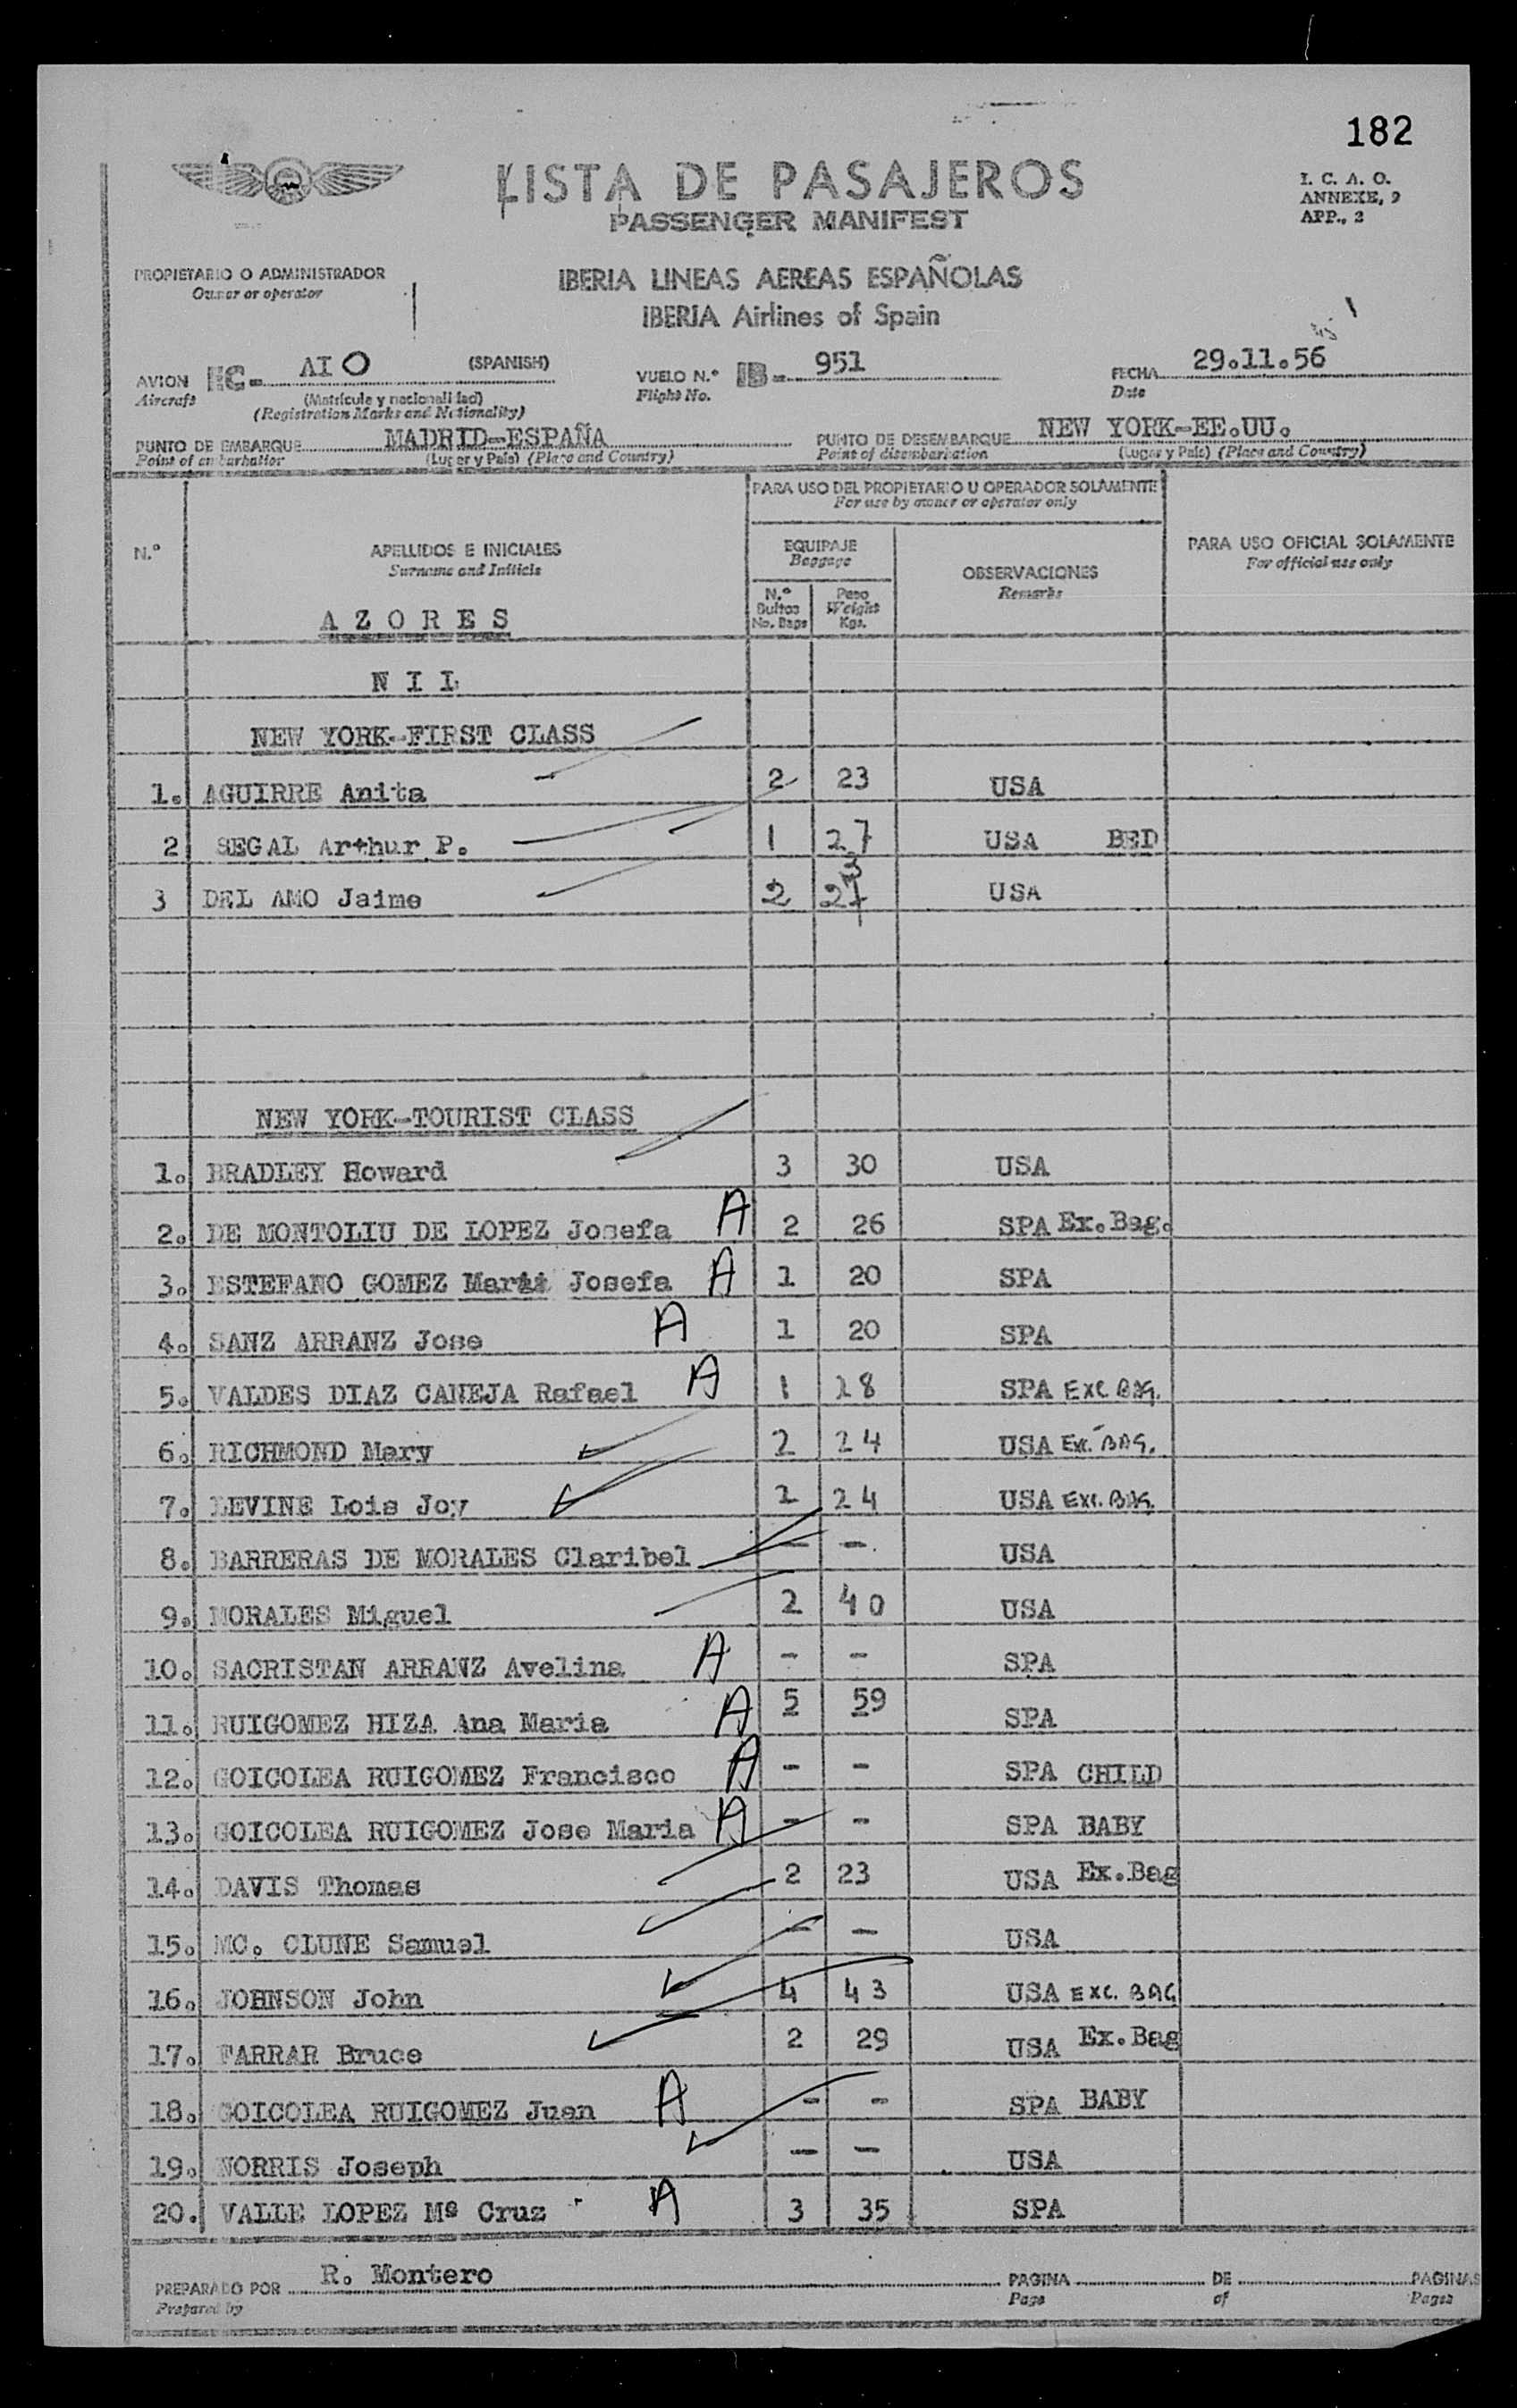 182
LISTA DE PASAJEROS
PASSENGER MANIFEST
I. C. A. O.
ANNEXE, 9
APP., 2
PROPIETARIO O ADMINISTRADOR
Owner or operator
IBERIA LINEAS AEREAS ESPAÑOLAS
IBERIA Airlines of Spain
AVION EC- AIO (SPANISH) VUELO N.º IB- 951 FECHA 29.11.56
Aircraft (Matrícula y nacionalidad) Flight No. Date
(Registration Marks and Nationality)
PUNTO DE EMBARQUE MADRID-ESPAÑA PUNTO DE DESEMBARQUE NEW YORK-EE.UU.
Point of embarkation (Lugar y País) (Place and Country) Point of disembarkation (Lugar y País) (Place and Country)
PARA USO DEL PROPIETARIO U OPERADOR SOLAMENTE
For use by owner or operator only
N.º APELLIDOS E INICIALES EQUIPAJE OBSERVACIONES PARA USO OFICIAL SOLAMENTE
Surname and Initials Baggage Remarks For official use only
N.º Bultos No. Bags Peso Weight Kgs.
AZORES
NIL
NEW YORK-FIRST CLASS
1. AGUIRRE Anita 2 23 USA
2 SEGAL Arthur P. 1 27 USA BED
3 DEL AMO Jaime 2 USA
NEW YORK-TOURIST CLASS
1. BRADLEY Howard 3 30 USA
2. DE MONTOLIU DE LOPEZ Josefa A 2 26 SPA Ex.Bag.
3. ESTEFANO GOMEZ Josefa A 1 20 SPA
4. SANZ ARRANZ Jose A 1 20 SPA
5. VALDES DIAZ CANEJA Rafael A 1 28 SPA EXC BAG.
6. RICHMOND Mary 2 24 USA EXC. BAG.
7. LEVINE Lois Joy 2 24 USA EXC. BAG.
8. BARRERAS DE MORALES Claribel - - USA
9. MORALES Miguel 2 40 USA
10. SACRISTAN ARRANZ Avelina A - - SPA
11. RUIGOMEZ HIZA Ana Maria A 5 59 SPA
12. GOICOLEA RUIGOMEZ Francisco A - - SPA CHILD
13. GOICOLEA RUIGOMEZ Jose Maria A - - SPA BABY
14. DAVIS Thomas 2 23 USA Ex.Bag
15. MC. CLUNE Samuel - - USA
16. JOHNSON John 4 43 USA EXC. BAG
17. FARRAR Bruce 2 29 USA Ex.Bag
18. GOICOLEA RUIGOMEZ Juan A - - SPA BABY
19. NORRIS Joseph - - USA
20. VALLE LOPEZ Mª Cruz A 3 35 SPA
PREPARADO POR R. Montero PAGINA DE PAGINAS
Prepared by Page of Pages